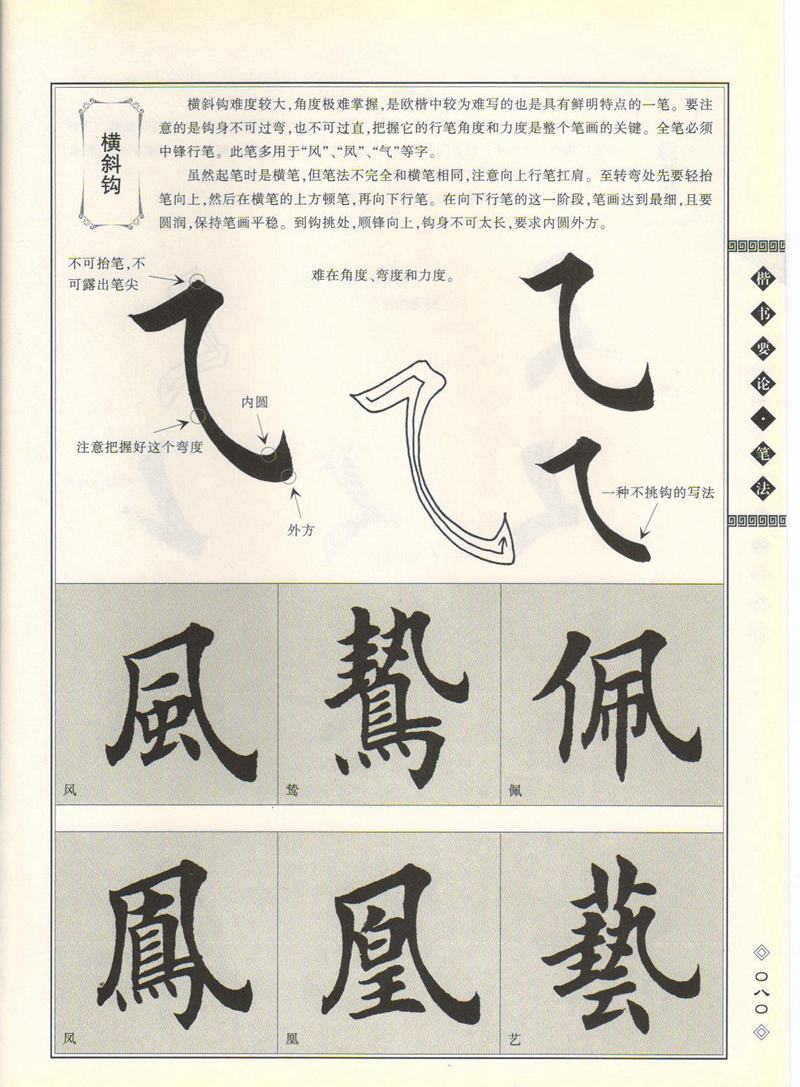 横斜钩
横斜钩难度较大，角度极难掌握，是欧楷中较为难写的也是具有鲜明特点的一笔。要注
意的是钩身不可过弯，也不可过直，把握它的行笔角度和力度是整个笔画的关键。全笔必须
中锋行笔。此笔多用于“风”、“凤”、“气”等字。
虽然起笔时是横笔，但笔法不完全和横笔相同，注意向上行笔扛肩。至转弯处先要轻抬
笔向上，然后在横笔的上方顿笔，再向下行笔。在向下行笔的这一阶段，笔画达到最细，且要
圆润，保持笔画平稳。到钩挑处，顺锋向上，钩身不可太长，要求内圆外方。
不可抬笔，不
可露出笔尖
难在角度、弯度和力度。
内圆
注意把握好这个弯度
外方
一种不挑钩的写法
風
风
鷙
鸷
佩
佩
鳳
凤
凰
凰
藝
艺
楷书要论·笔法
〇八〇